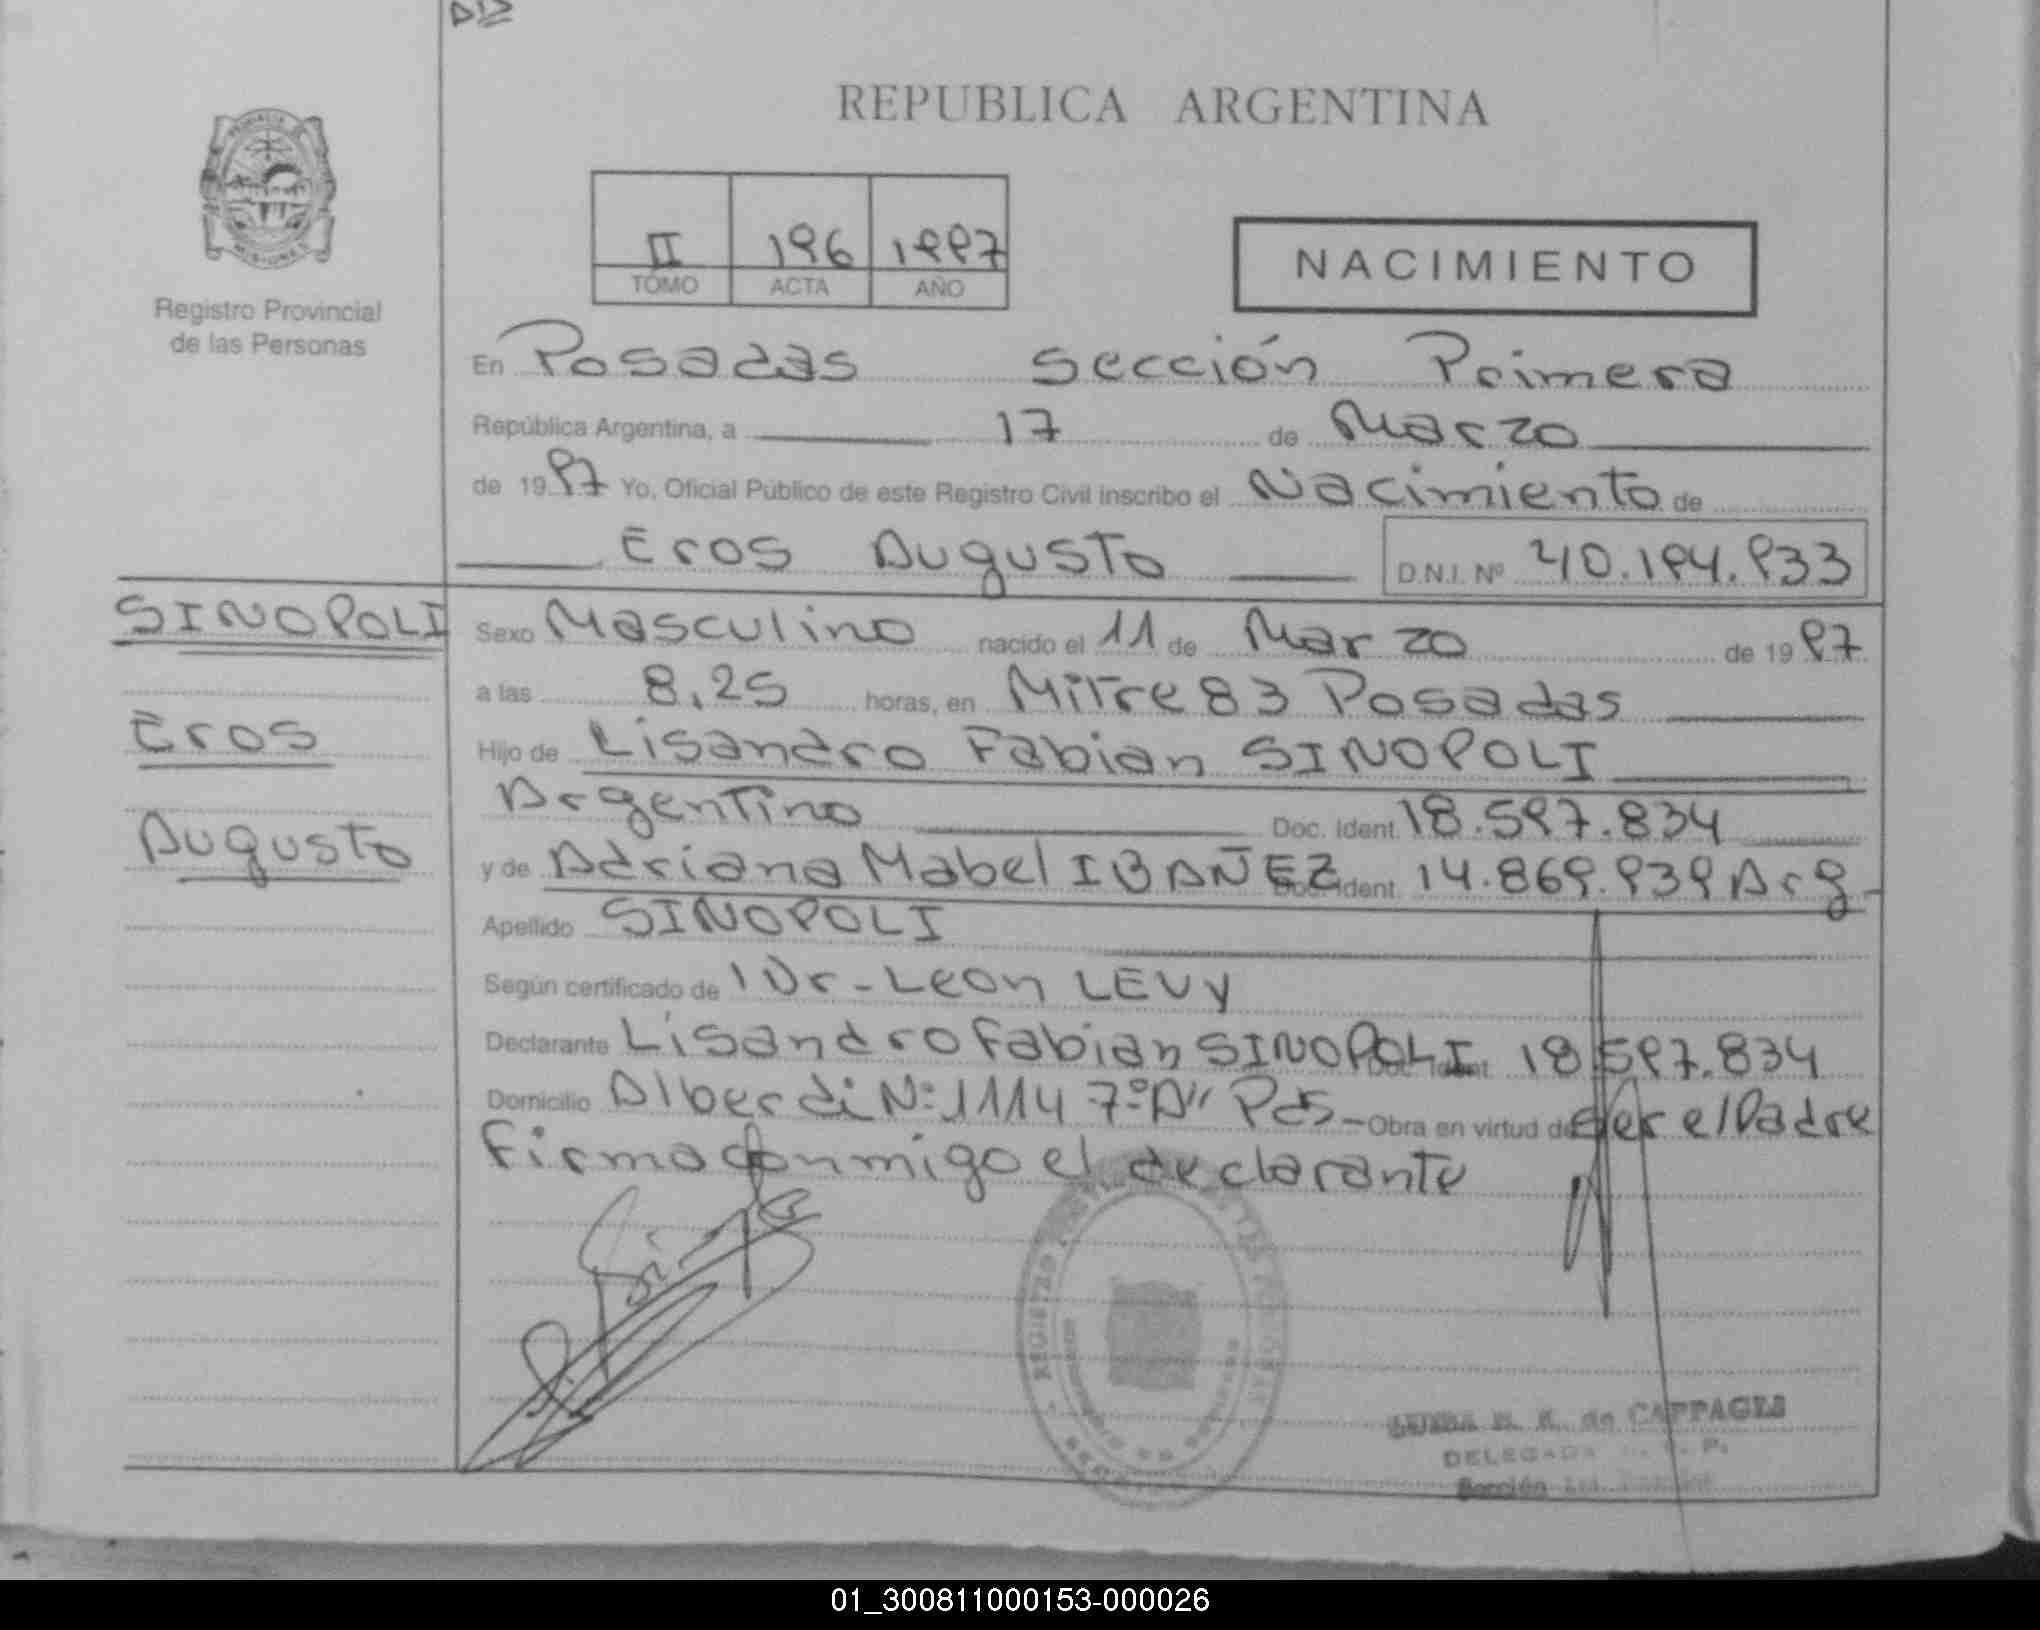 REPUBLICA ARGENTINA
II 196 1997
TOMO ACTA AÑO
NACIMIENTO
Registro Provincial
de las Personas
En Posadas sección Primera
República Argentina, a 17 de Marzo
de 1997 Yo, Oficial Público de este Registro Civil inscribo el Nacimiento de
Eros Augusto D.N.I. Nº 40.194.933
SINOPOLI
Eros
Augusto
Sexo Masculino nacido el 11 de Marzo de 1997
a las 8,25 horas, en Mitre 83 Posadas
Hijo de Lisandro Fabian SINOPOLI
Argentino Doc. Ident. 18.597.834
y de Adriana Mabel IBAÑEZ Doc. Ident. 14.869.939 Arg
Apellido SINOPOLI
Según certificado de Dr- Leon LEVY
Declarante Lisandro Fabian SINOPOLI Doc. Ident. 18.597.834
Domicilio Alberdi Nº 1114 7º"A" Pds- Obra en virtud de ser el Padre
Firma conmigo el declarante
de CAPPAGLI
DELEGADA
Sección
01_300811000153-000026